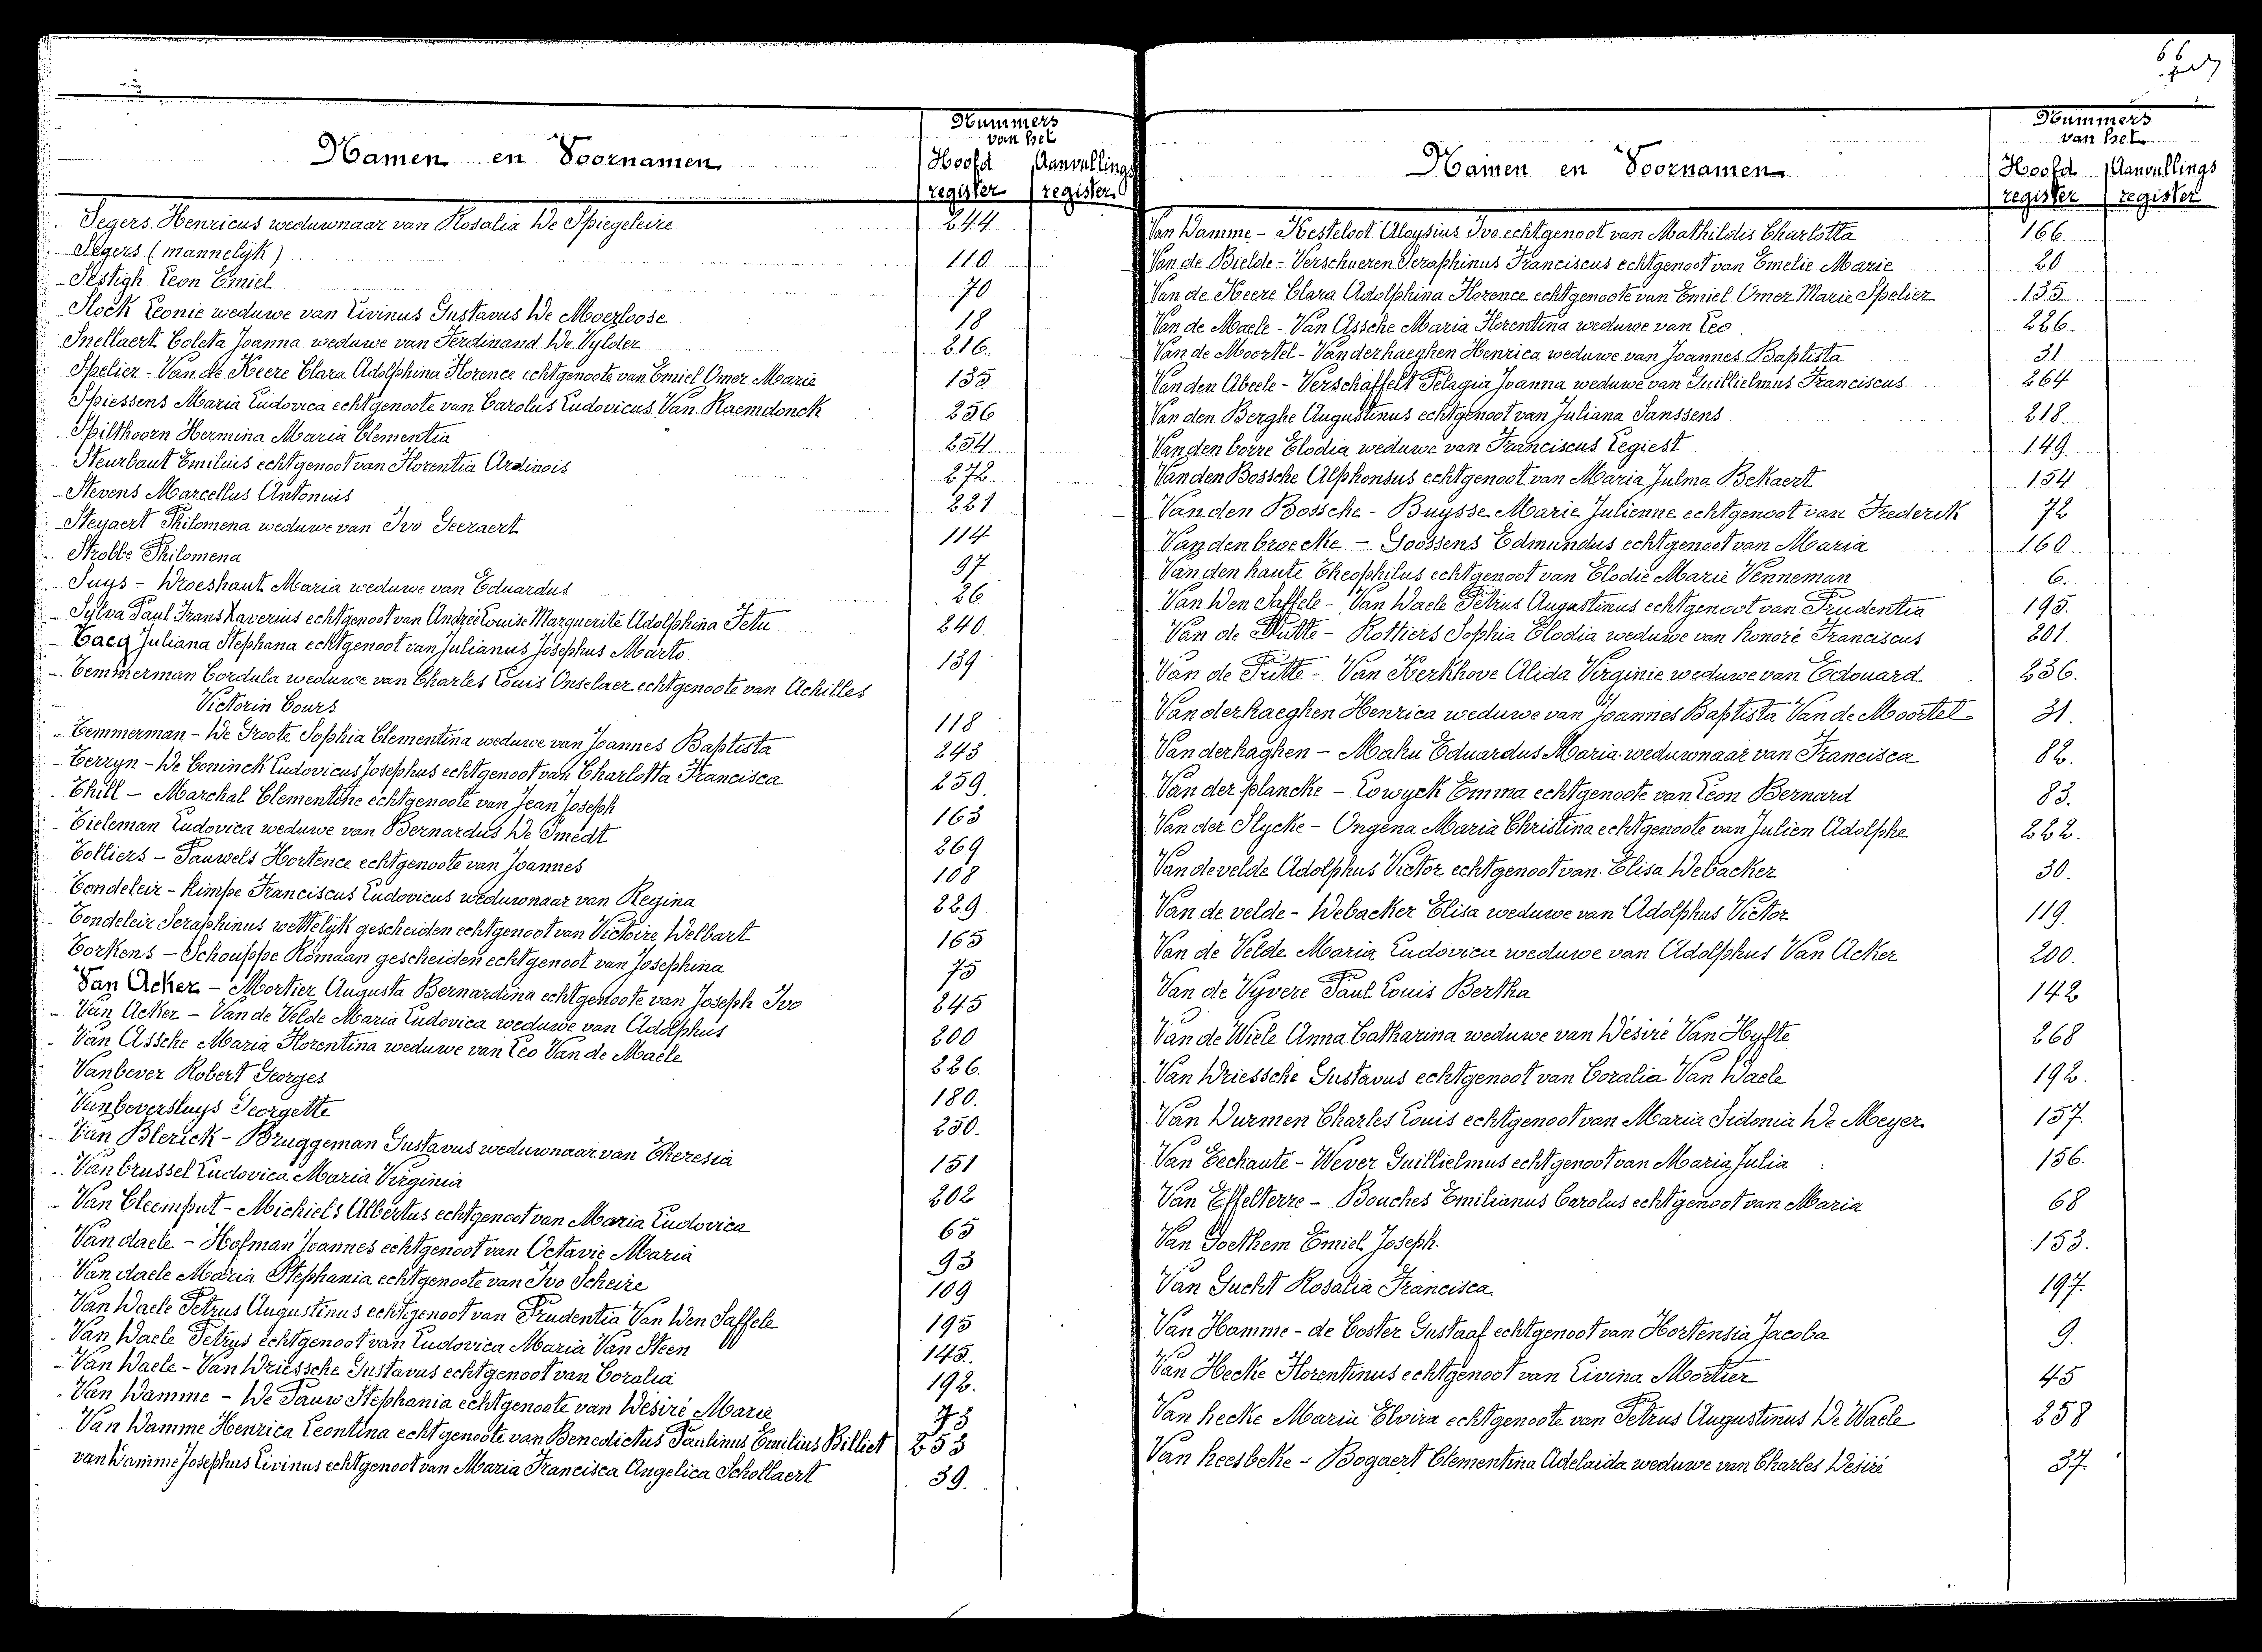 66
Namen en Voornamen
Nummers
van het
Hoofd Aanvullings
register register
Segers Henricus weduwnaar van Rosalia De Spiegeleire 244
Segers (mannelijk) 110
Sestigh Leon Emiel 70
Slock Leonie weduwe van Livinus Gustavus De Moerloose 18
Snellaert Coleta Joanna weduwe van Ferdinand De Vylder 216.
Spelier - Van de Keere Clara Adolphina Florence echtgenoote van Emiel Omer Marie 135
Spiessens Maria Ludovica echtgenoote van Carolus Ludovicus Van Raemdonck 256
Spilthoorn Hermina Maria Clementia 254
Steurbaut Emilius echtgenoot van Florentia Ardinois 272.
Stevens Marcellus Antonius 221
Steyaert Philomena weduwe van Ivo Geeraert 114
Strobbe Philomena 97
Suys - Droeshaut Maria weduwe van Eduardus 26
Sylva Paul Frans Xaverius echtgenoot van Andrée Louise Marguerite Adolphina Fetu 240.
Taeq Juliana Stephana echtgenoot van Julianus Josephus Marto 139
Temmerman Cordula weduwe van Charles Louis Onselaer echtgenoote van Achilles
Victorin Cours 118
Temmerman - De Groote Sophia Clementina weduwe van Joannes Baptista 243
Terryn - De Coninck Ludovicus Josephus echtgenoot van Charlotta Francisca 259
Thill - Marchal Clementine echtgenoote van Jean Joseph 163
Tieleman Ludovica weduwe van Bernardus De Smedt 269
Tolliers - Pauwels Hortence echtgenoote van Joannes 108
Tondeleir - Kimpe Franciscus Ludovicus weduwnaar van Regina 229
Tondeleir Seraphinus wettelijk gescheiden echtgenoot van Victoire Delbart 165
Torkens - Schouppe Romaan gescheiden echtgenoot van Josephina 75
Van Acker - Mortier Augusta Bernardina echtgenoote van Joseph Ivo 245
Van Acker - Van de Velde Maria Ludovica weduwe van Adolphus 200
Van Assche Maria Florentina weduwe van Leo Van de Maele 226.
Vanbever Robert Georges 180.
Vanbeversluys Georgette 250.
Van Blerick - Bruggeman Gustavus weduwnaar van Theresia 151
Vanbrussel Ludovica Maria Virginia 202
Van Cleemput - Michiels Albertus echtgenoot van Maria Ludovica 65
Van daele - Hofman Joannes echtgenoot van Octavie Maria 93
Van daele Maria Stephania echtgenoote van Ivo Scheire 109
Van Daele Petrus Augustinus echtgenoot van Prudentia Van Den Saffele 195
Van Daele Petrus echtgenoot van Ludovica Maria Van Steen 145.
Van Daele - Van Driessche Gustavus echtgenoot van Coralia 192.
Van Damme - De Pauw Stephania echtgenoote van Désiré Marie 73
Van Damme Henrica Leontina echtgenoote van Benedictus Paulinus Emilius Billiet 253
van Damme Josephus Livinus echtgenoot van Maria Francisca Angelica Schollaert 39.
Namen en Voornamen
Nummers
van het
Hoofd Aanvullings
register register
Van Damme - Hesteloot Aloysius Ivo echtgenoot van Mathildis Charlotta 166
Van de Bielde - Verschueren Seraphinus Franciscus echtgenoot van Emelie Marie 20
Van de Keere Clara Adolphina Florence echtgenoote van Emiel Omer Marie Spelier 135
Van de Maele - Van Assche Maria Florentina weduwe van Leo. 226.
Van de Moortel - Vanderhaeghen Henrica weduwe van Joannes Baptista 31
Van den Abeele - Verschaffelt Pelagia Joanna weduwe van Guillielmus Franciscus 264
Van den Berghe Augustinus echtgenoot van Juliana Janssens 218.
Vanden borre Elodia weduwe van Franciscus Legiest 149.
Van den Bossche Alphonsus echtgenoot van Maria Julma Bekaert 154
Van den Bossche - Buysse Marie Julienne echtgenoot van Frederik 72
Vanden broecke - Goossens Edmundus echtgenoot van Maria 160
Van den haute Theophilus echtgenoot van Elodie Marie Venneman 6.
Van Den Saffele - Van Daele Petrus Augustinus echtgenoot van Prudentia 195.
Van de Putte - Rottiers Sophia Elodia weduwe van honoré Franciscus 201.
Van de Putte - Van Kerkhove Alida Virginie weduwe van Edouard 236.
Van derhaeghen Henrica weduwe van Joannes Baptista Van de Moortel 31.
Van derhaghen - Mahu Eduardus Maria weduwnaar van Francisca 82.
Van der plancke - Lowyck Emma echtgenoote van Léon Bernard 83.
Van der Slycke - Ongena Maria Christina echtgenoote van Julien Adolphe 222.
Van de velde Adolphus Victor echtgenoot van Elisa Debacker 30.
Van de velde - Debacker Elisa weduwe van Adolphus Victor 119.
Van de Velde Maria Ludovica weduwe van Adolphus Van Acker 200.
Van de Vyvere Paul Louis Bertha 142
Van de Wiele Anna Catharina weduwe van Désiré Van Hyfte 268
Van Driessche Gustavus echtgenoot van Coralia Van Daele 192.
Van Durmen Charles Louis echtgenoot van Maria Sidonia De Meyer 157.
Van Eechaute - Wever Guillielmus echtgenoot van Maria Julia 156.
Van Effelterre - Bouches Emilianus Carolus echtgenoot van Maria 68
Van Goethem Emiel Joseph. 153.
Van Gucht Rosalia Francisca 197.
Van Hamme - de Coster Gustaaf echtgenoot van Hortensia Jacoba 9.
Van Hecke Florentinus echtgenoot van Livina Mortier 45
Van hecke Maria Elvira echtgenoote van Petrus Augustinus De Waele 258
Van heesbeke - Bogaert Clementina Adelaida weduwe van Charles Désiré 37.